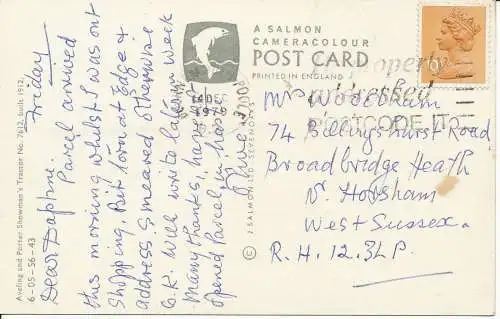 Aveling and Porter Showman's Tractor No. 7612, built 1912.
6-05-56-43
Friday
Dear Daphne.
Parcel arrived
this morning whilst I was out
Shopping. Bit torn at Edge &
address smeared otherwise
O.K. Will write later in week
Many thanks, haven't
opened Parcel, in hope
A SALMON
CAMERACOLOUR
POST CARD
PRINTED IN ENGLAND
© J. SALMON LTD. SEVENOAKS
DEC
1979
properly
addressed
POSTCODE IT
Woodham
74 Billingshurst Road
Broadbridge Heath
Nr Horsham
West Sussex.
R.H.12.3LP.